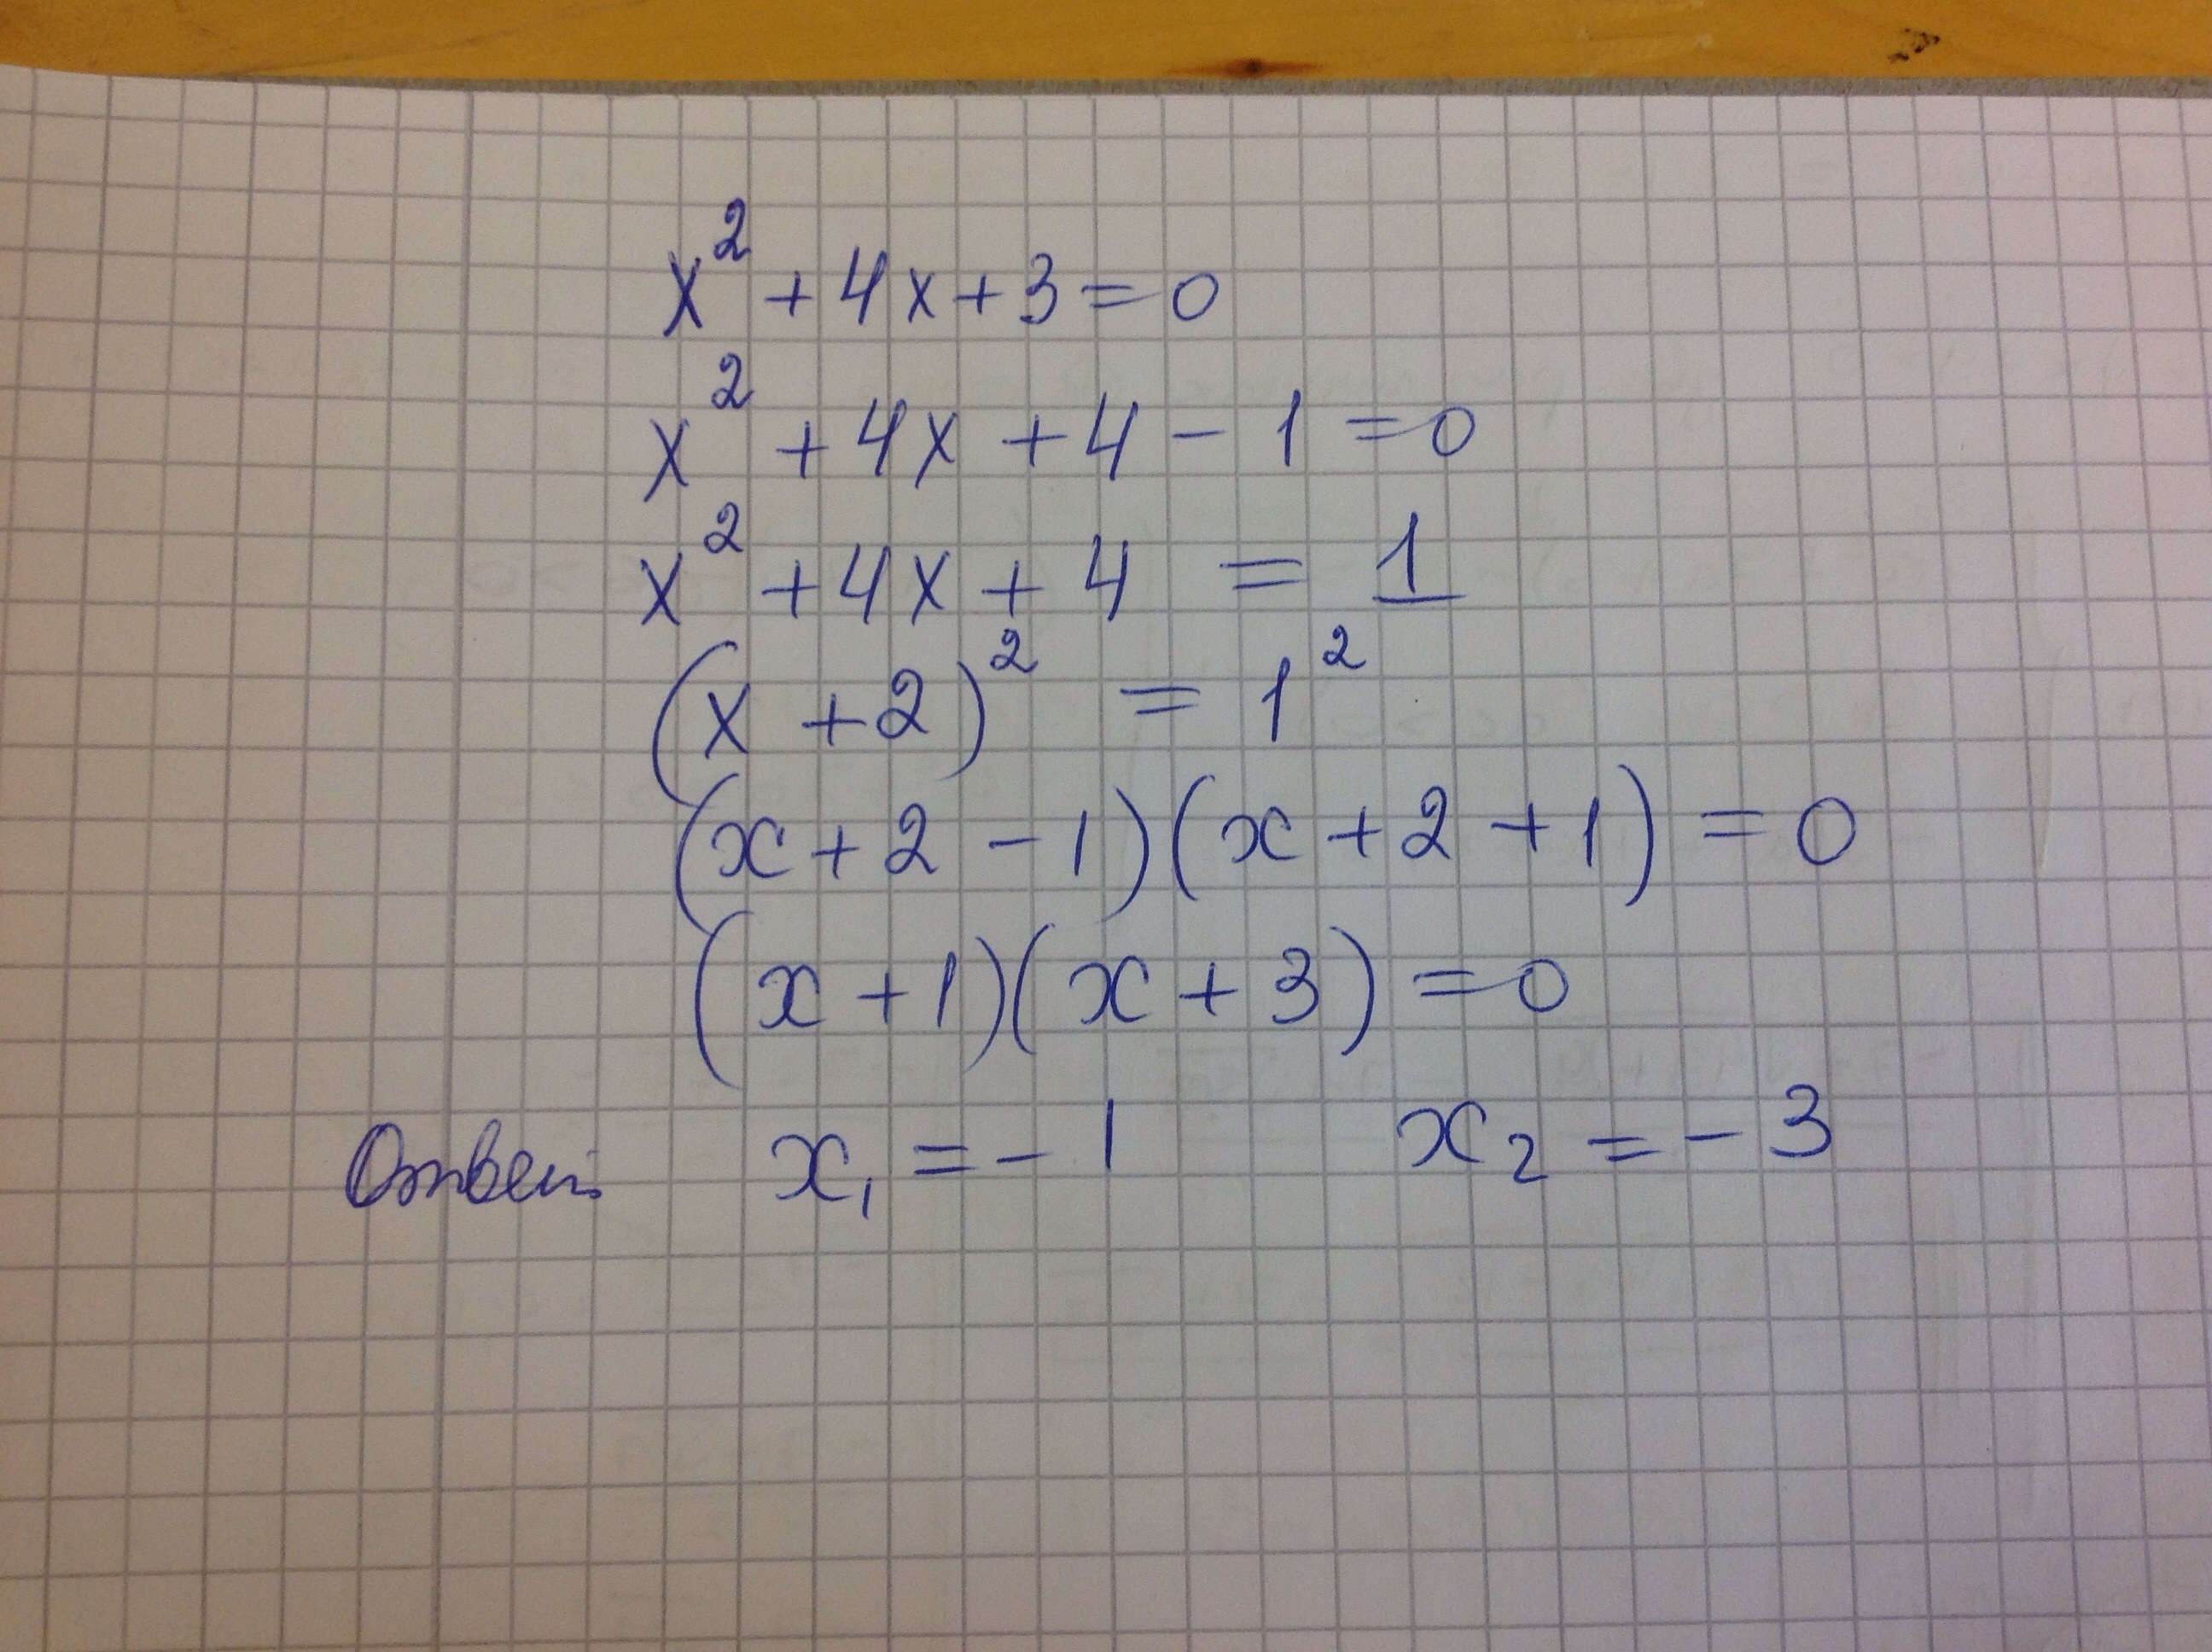 x² + 4x + 3 = 0
x² + 4x + 4 - 1 = 0
x² + 4x + 4 = 1
(x + 2)² = 1²
(x + 2 - 1)(x + 2 + 1) = 0
(x + 1)(x + 3) = 0
Ответ x₁ = - 1 x₂ = - 3